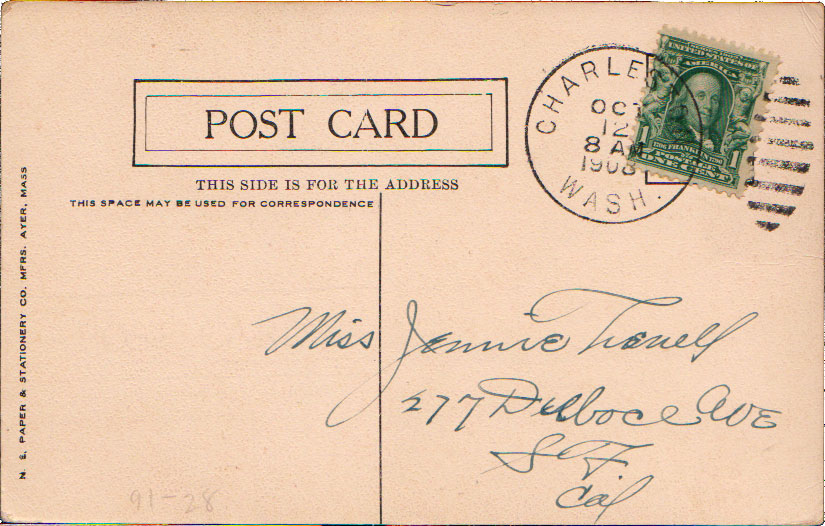 POST CARD
THIS SIDE IS FOR THE ADDRESS
THIS SPACE MAY BE USED FOR CORRESPONDENCE
N. E. PAPER & STATIONERY CO. MFRS. AYER, MASS
OCT
12
8 AM
1908
WASH.
UNITED STATES OF
AMERICA
1706 FRANKLIN 1790
1 1
ONE CENT
Miss Jennie
277 Ave
S F
Cal
91-28